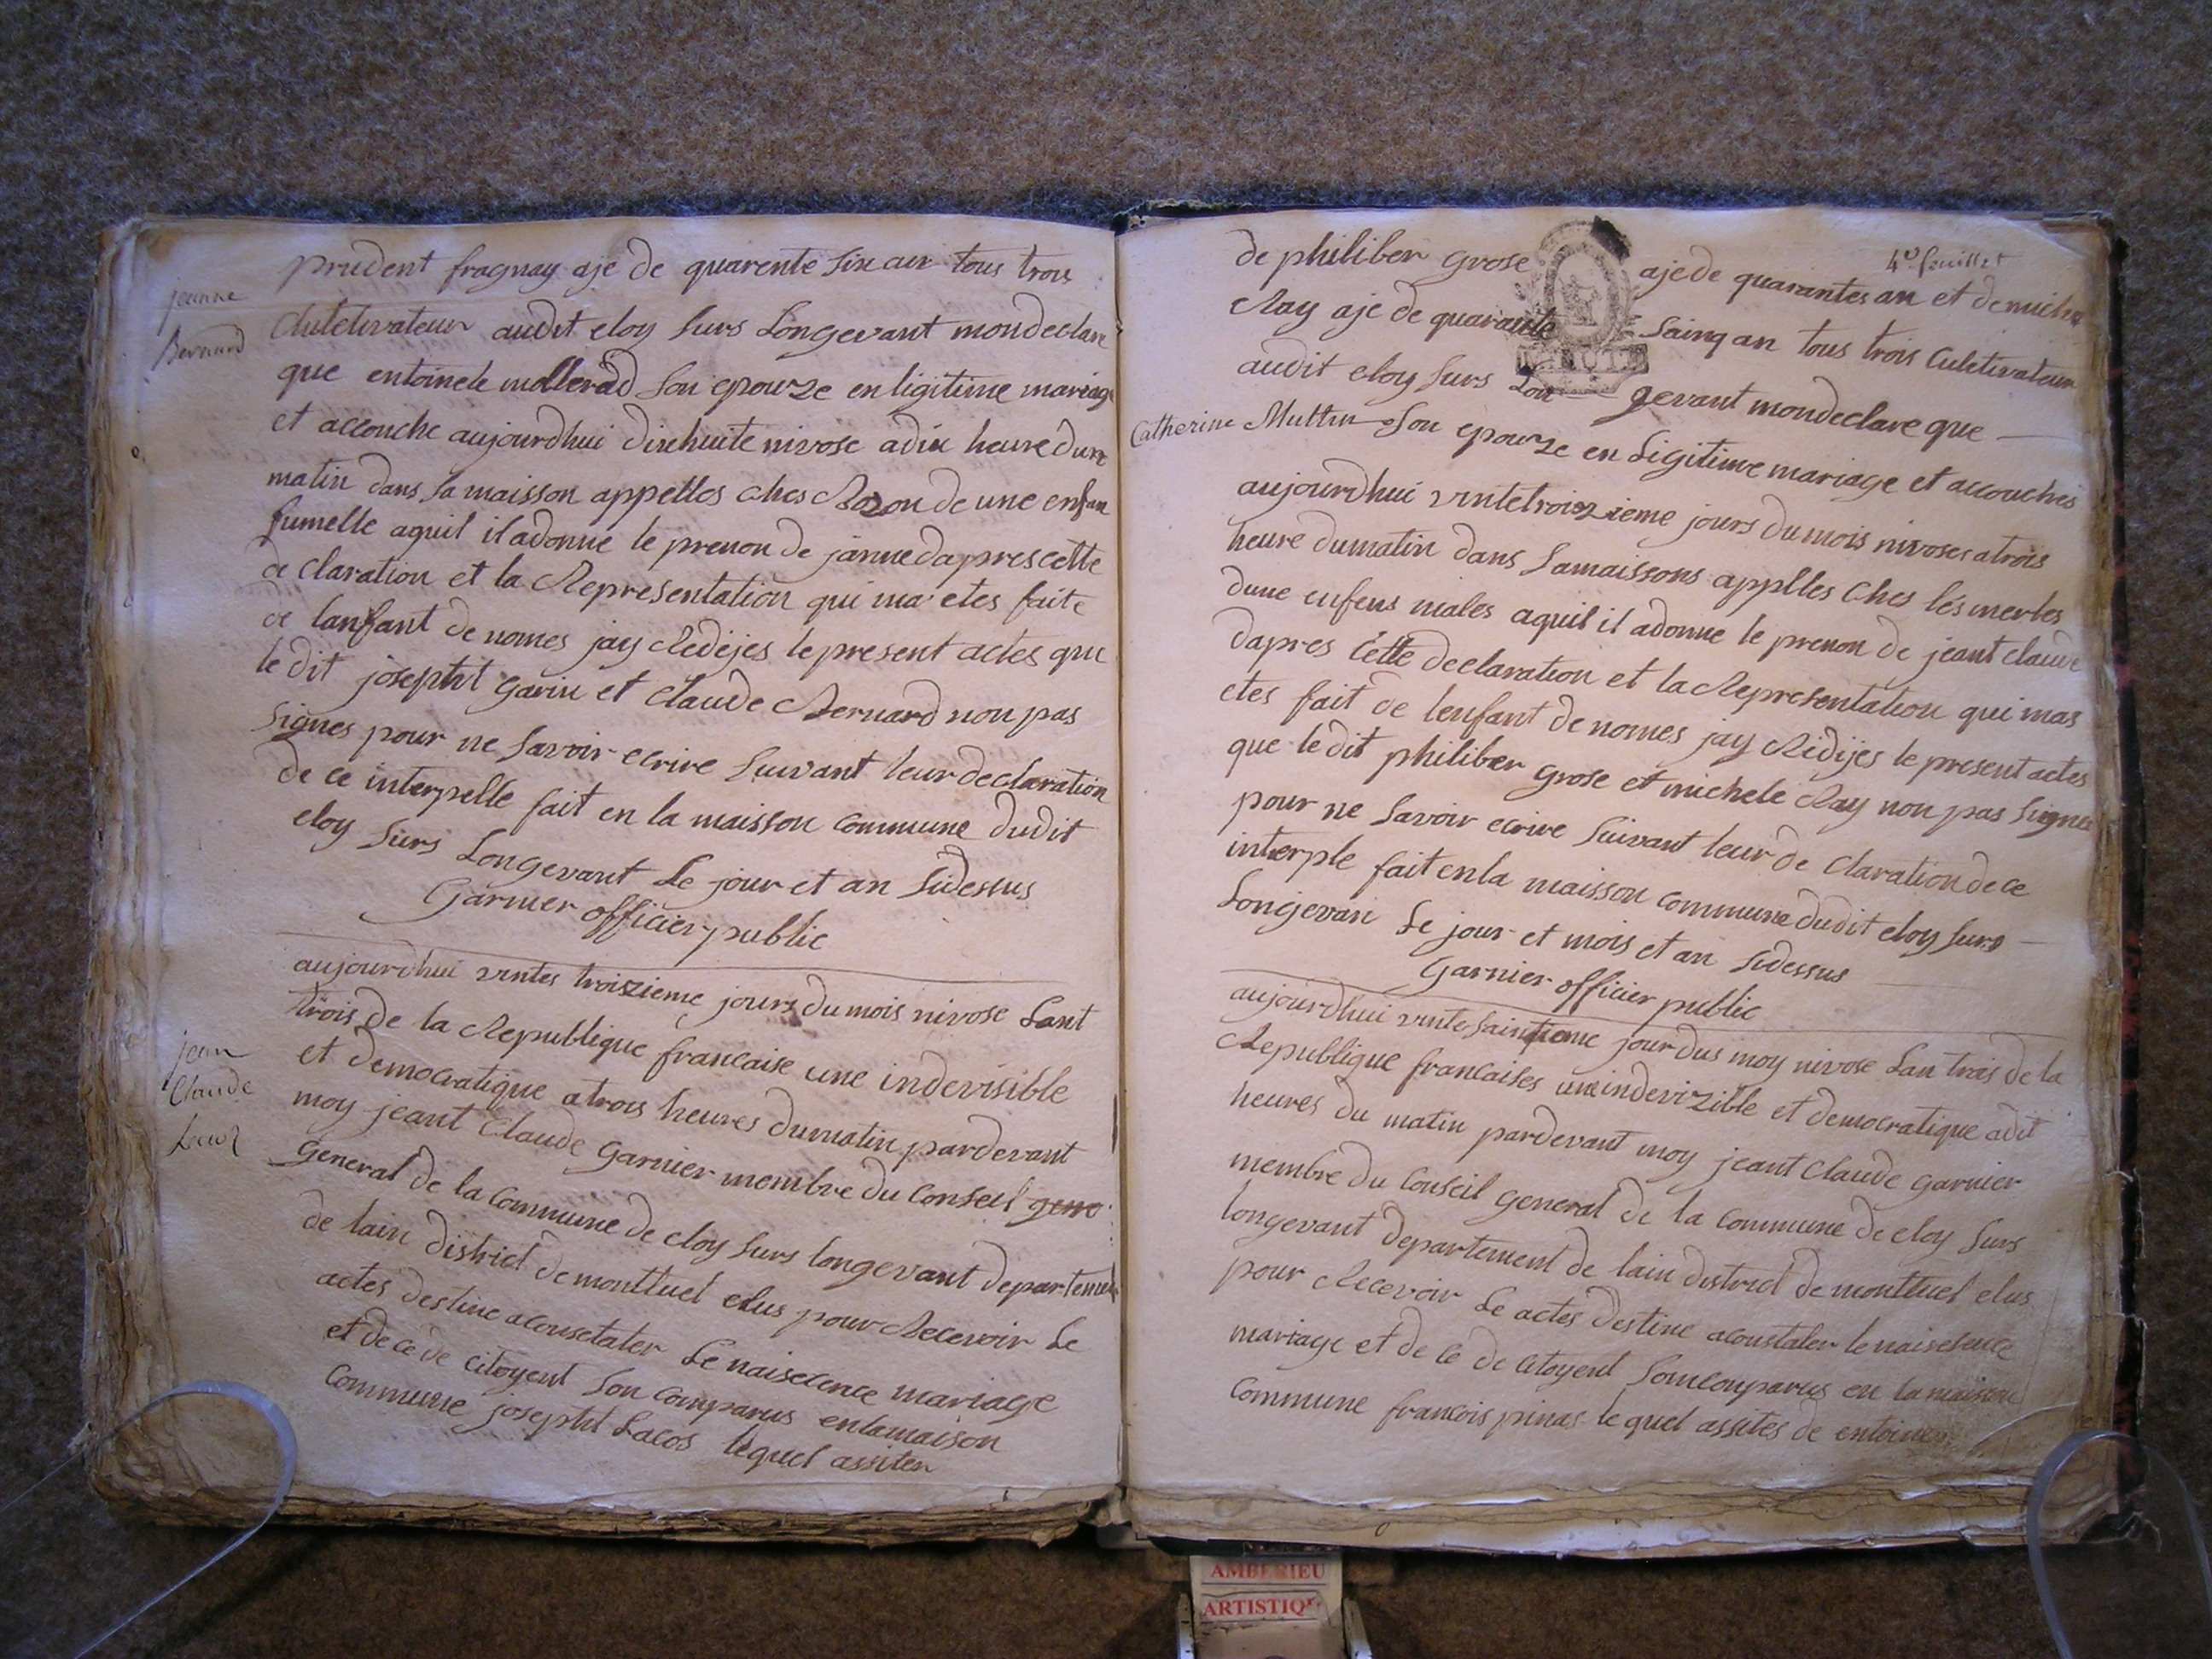 prudent fragnay aje de quarente six an tous trois
jeanne
Bernard
Cultetivateur audit eloy surs Longevant mondeclare
que entoinete mollerad son epouze en ligitime mariage
et accouche aujourdhui dixhuite nivose a dix heure dux
matin dans sa maisson appelles ches Rozon de une enfan
fumelle aquil il adonne le prenon de janne dapres cette
de claration et la Representation qui ma etes faite
de lanfant de nomes jay Redijes le present actes que
le dit josepht Garin et Claude Bernard non pas
signes pour ne savoir ecrire suivant leur declaration
de ce interpelle fait en la maisson commune dudit
eloy surs Longevant Le jour et an sidessus
Garnier officier public
aujourdhui vintes troiszieme jours du mois nivose Lant
trois de la Republique francaise une indevisible
et democratique a trois heures dumatin pardevant
jean
Claude
moy jeant Claude Garnier membre du Conseil gene
General de la Commune de eloy surs longevant departement
de lain district de montluel elus pour Recevoir Le
actes destine aconsetater Le naisecence mariage
et de ce de citoyent son comparus enlamaison
Commune josepht Lacos lequel assiten
4e feuillet
de philiber Grose aje de quarantes an et de michel
Ray aje de quarante sainq an tous trois Cultetivateur
audit eloy surs Lon gevant mondeclare que
Catherine Muttin son epouze en Ligitime mariage et accouches
aujourdhui vintetroiszieme jours du mois nivoses atrois
heure dumatin dans samaissons applles Ches les merles
dune enfens males aquil il adonne le prenon de jeant claude
dapres Cette declaration et la Representation qui mas
etes fait de lenfant de nomes jay Ridijes le present actes
que le dit philiber Grose et michele Ray non pas signes
pour ne savoir ecrire suivant leur de claration de ce
interple fait en la maisson commune dudit eloy surs
Longevan Le jour et mois et an sidessus
Garnier officier public
aujourdhui vinte saintieme jour dus moy nivose Lan trais de la
Republique francaises une indevizible et democratique adit
heures du matin pardevant moy jeant Claude Garnier
membre du Conseil general de la Commune de eloy surs
longevant departement de lain district de montluel elus
pour Recevoir Le actes destine aconstater le naisesence
mariage et de ce de citoyent soncomparus en la maison
Commune francois pinas le quel assites de entoine
AMBERIEU
ARTISTIQUE